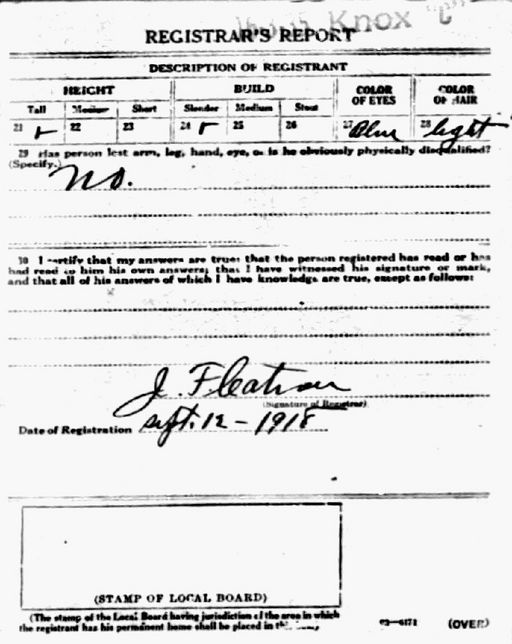 Knox
REGISTRAR'S REPORT
DESCRIPTION OF REGISTRANT
HEIGHT BUILD COLOR OF EYES COLOR OF HAIR
Tall Medium Short Slender Medium Stout
21 22 23 24 25 26 27 Blue 28 light
29 Has person lost arm, leg, hand, eye, or is he obviously physically disqualified?
(Specify.) No.
30 I certify that my answers are true; that the person registered has read or has
had read to him his own answers; that I have witnessed his signature or mark,
and that all of his answers of which I have knowledge are true, except as follows:
J.
(Signature of Registrar)
Date of Registration Sept. 12 - 1918
(STAMP OF LOCAL BOARD)
(The stamp of the Local Board having jurisdiction of the area in which
the registrant has his permanent home shall be placed in
(OVER)